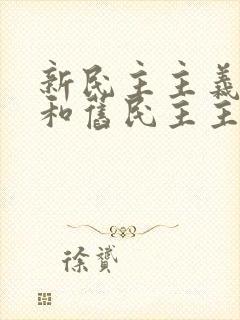 新民主主義
和舊民主主
徐贇